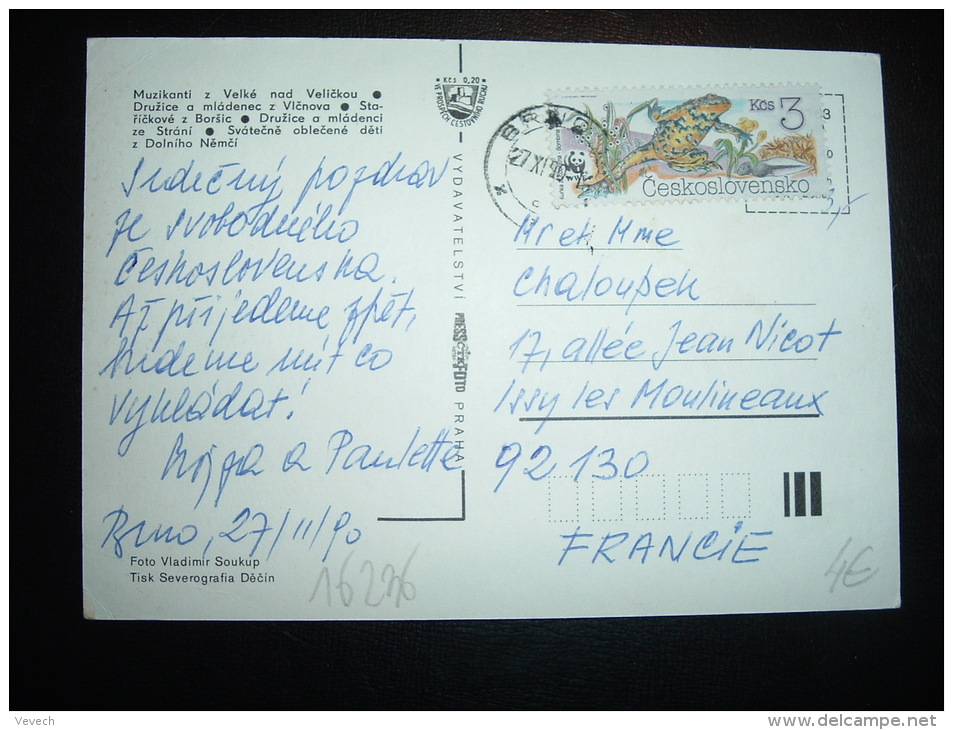 Muzikanti z Velké nad Veličkou ●
Družice a mládenec z Vlčnova ● Sta-
říčkové z Boršic ● Družice a mládenci
ze Strání ● Svátečně oblečené děti
z Dolního Němčí
Srdečný pozdrav
ze svobodného
Československa.
Až přijedeme zpět,
budeme mít co
vykládat!
a Paulette
Brno, 27/11/90
Foto Vladimír Soukup
Tisk Severografia Děčín
16226
Kčs 0,20
VE PROSPĚCH CESTOVNÍHO RUCHU
VYDAVATELSTVÍ PRESSFOTO PRAHA
BRNO
27.XI.90
Kčs 3
WWF
Československo
Mr et Mme
Chaloupek
17, allée Jean Nicot
Issy les Moulineaux
92 130
FRANCIE
4€
Vevech
http://www.delcampe.net